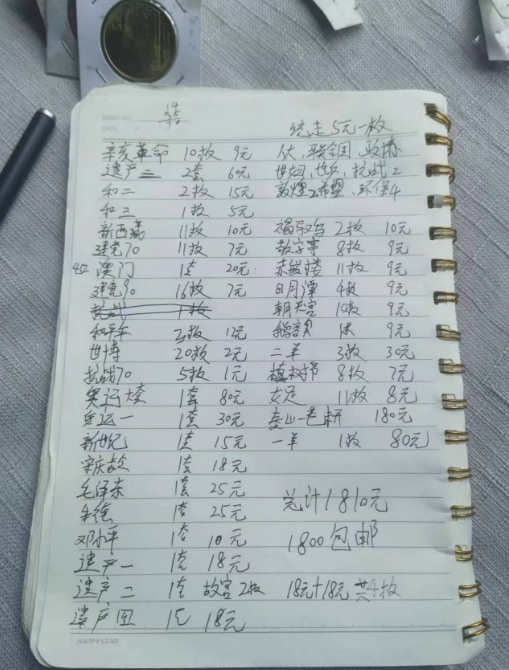 统走5元一枚
辛亥革命 10枚 9元 人大,联合国,政协
遗产三 2套 6元 世妇,抗战2
和二 2枚 15元 敦煌2希望,环保4
和三 1枚 5元
新西藏 11枚 10元 褐马鸡 2枚 10元
建党70 11枚 7元 敖字亭 8枚 9元
澳门 1套 20元 赤嵌楼 11枚 9元
建党90 16枚 7元 日月潭 4枚 9元
抗战 1枚 朝天宫 10枚 9元
和平年 2枚 12元 鹅銮鼻 1枚 9元
世博 20枚 2元 二羊 3枚 30元
抗战70 5枚 1元 植树节 8枚 7元
奥运大全 1套 80元 女足 11枚 8元
奥运一 1套 30元 泰山一卷拆 180元
新世纪 1套 15元 一羊 1枚 80元
宋庆龄 1套 18元
毛泽东 1套 25元
朱德 1套 25元 总计1810元
邓小平 1套 10元 1800包邮
遗产一 1套 18元
遗产二 1套 故宫2枚 18元+18元 共4枚
遗产四 1套 18元
HAPPY STAR